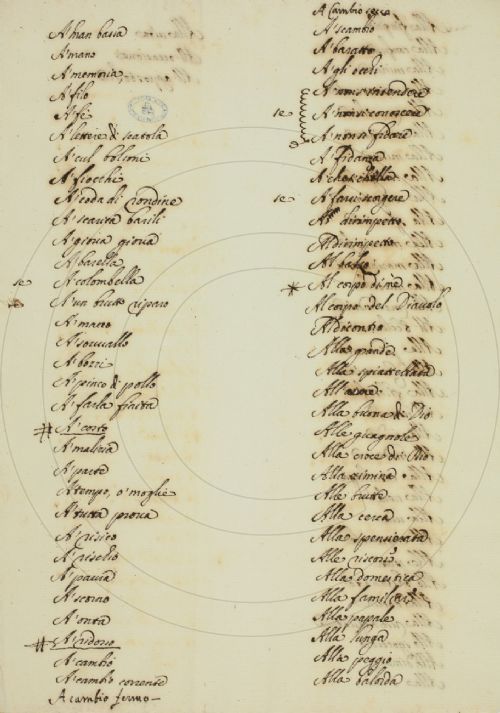 A' man bassa
A' mano
A' memoria
A' filo
A' fè
A' lettere di scatola
A' cul bolconi
A' fiocchi
A' coda di rondine
A' scarica barili
A' giova giova
A' barella
se A' colombella
A' un brutto riparo
A' mano
A' sorvallo
A' borri
A' pinco di pollo
A' farla finita
A' costo
A' malizia
A' parte
A' tempo, o' moglie
A' tutta prova
A' risico
A' rischio
A' paura
A' scorno
A' onta
A' ridosso
A' cambio
A' cambio corrente
A cambio fermo
A Cambio secco
A' scambio
A' baratto
A' gli occhi
A'
se A' non si conoscere
A' non si fidare
A' fidanza
A' chetichella
se A' farsi scorgere
dirimpetto
Al dirimpetto
Al basso
Al corpo di me
Al corpo del Diavolo
Al dicontro
Alla grande
Alla spiattellata
All'
Alla buona di Dio
Alle guagnole
Alla croce di Dio
Alla
Alle brutte
Alla cerca
Alla spensierata
Alle riscosse
Alla domestica
Alla familiare
Alla papale
Alla lunga
Alla peggio
Alla balorda